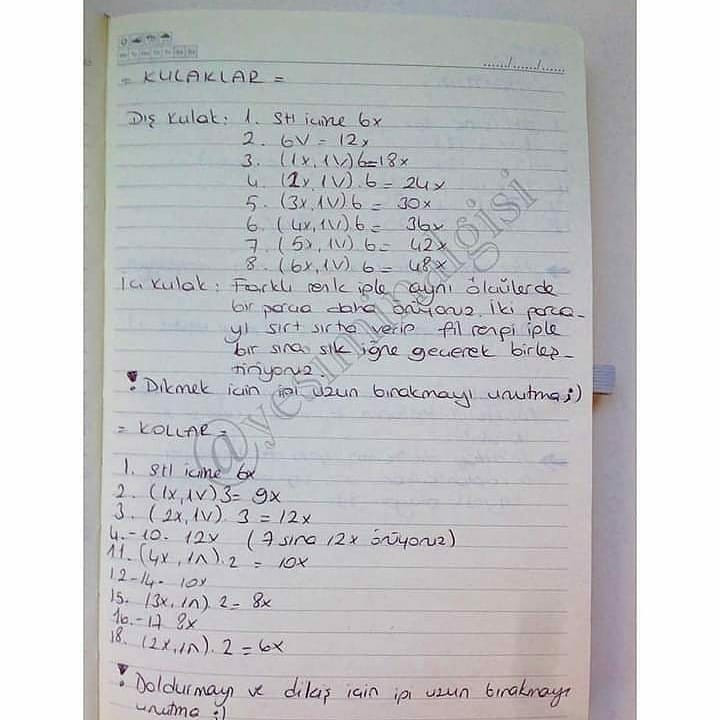 ....../....../......
= KULAKLAR =
Dış kulak: 1. Sth icine 6x
2. 6V = 12x
3. (1x, 1V) 6 = 18x
4. (2x, 1V). 6 = 24x
5. (3x, 1V). 6 = 30x
6. (4x, 1V). 6 = 36x
7. (5x, 1V). 6 = 42x
8. (6x, 1V). 6 = 48x
İci kulak: Farklı renk iple aynı ölcülerde
bir parca daha örüyoruz. İki parca-
yı sırt sırta verip fil rengi iple
bir sıra sık iğne gecerek birleş-
tiriyoruz.
! Dikmek icin ipi uzun bırakmayı unutma ;)
= KOLLAR =
1. Sth icine 6x
2. (1x, 1V) 3 = 9x
3. (2x, 1V). 3 = 12x
4.-10. 12x (7 sıra 12x örüyoruz)
11. (4x, 1Λ). 2 = 10x
12-14- 10x
15. (3x, 1Λ). 2 = 8x
16.-17 8x
18. (2x, 1Λ). 2 = 6x
! Doldurmayı ve dikiş icin ipi uzun bırakmayı
unutma ;)
@yesiminalgisi